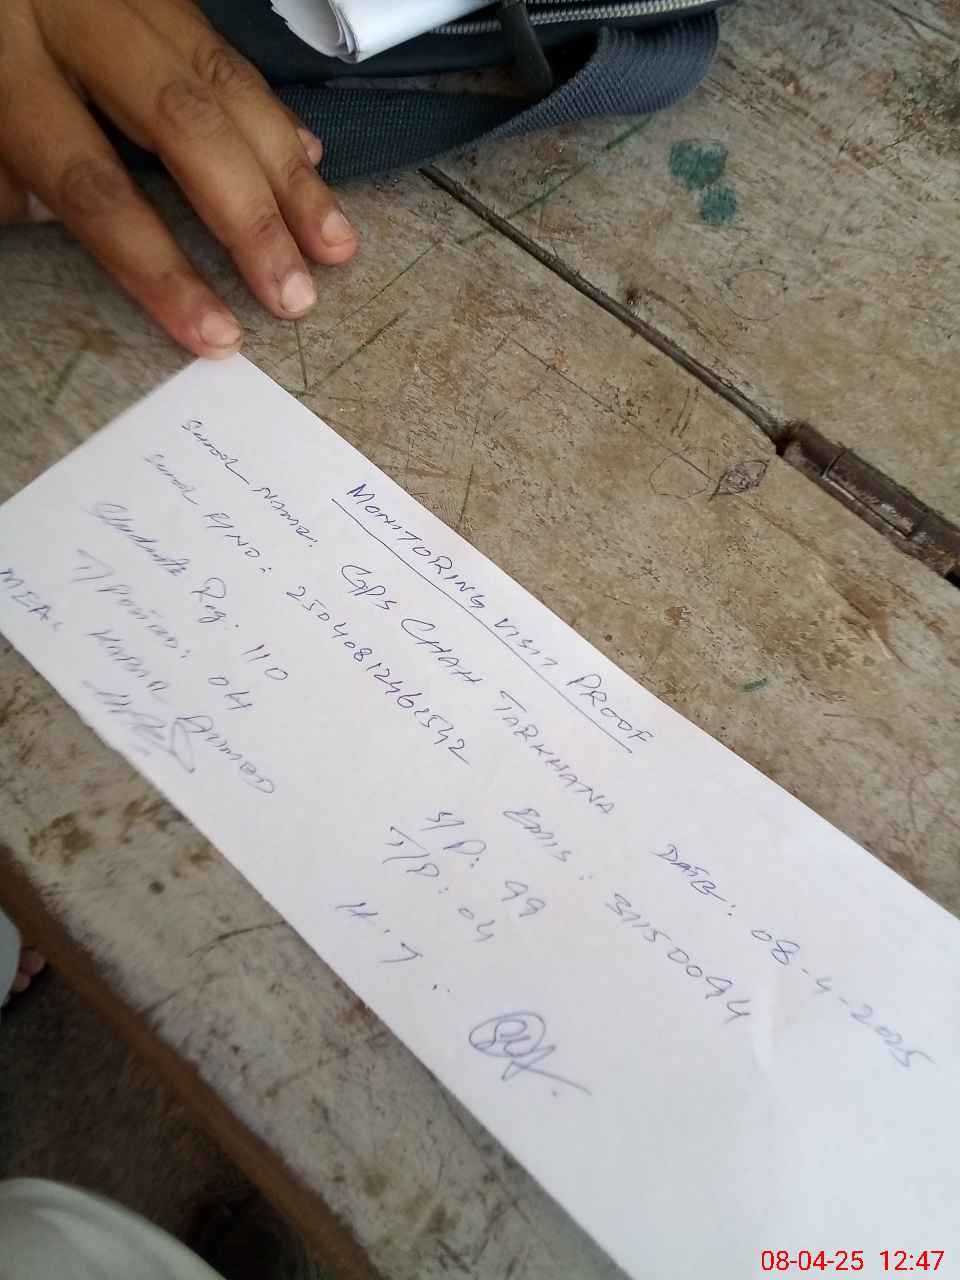 MONITORING VISIT PROOF
SCHOOL NAME: GPS CHAH TARKHANA DATE: 08-4-2025
SCHOOL P/NO: 2504081246 EMIS: 37150094
Students Reg. 110 S/P: 99
T/POSTED: 04 T/P: 04
MEA: AHMED H.T.
08-04-25 12:47